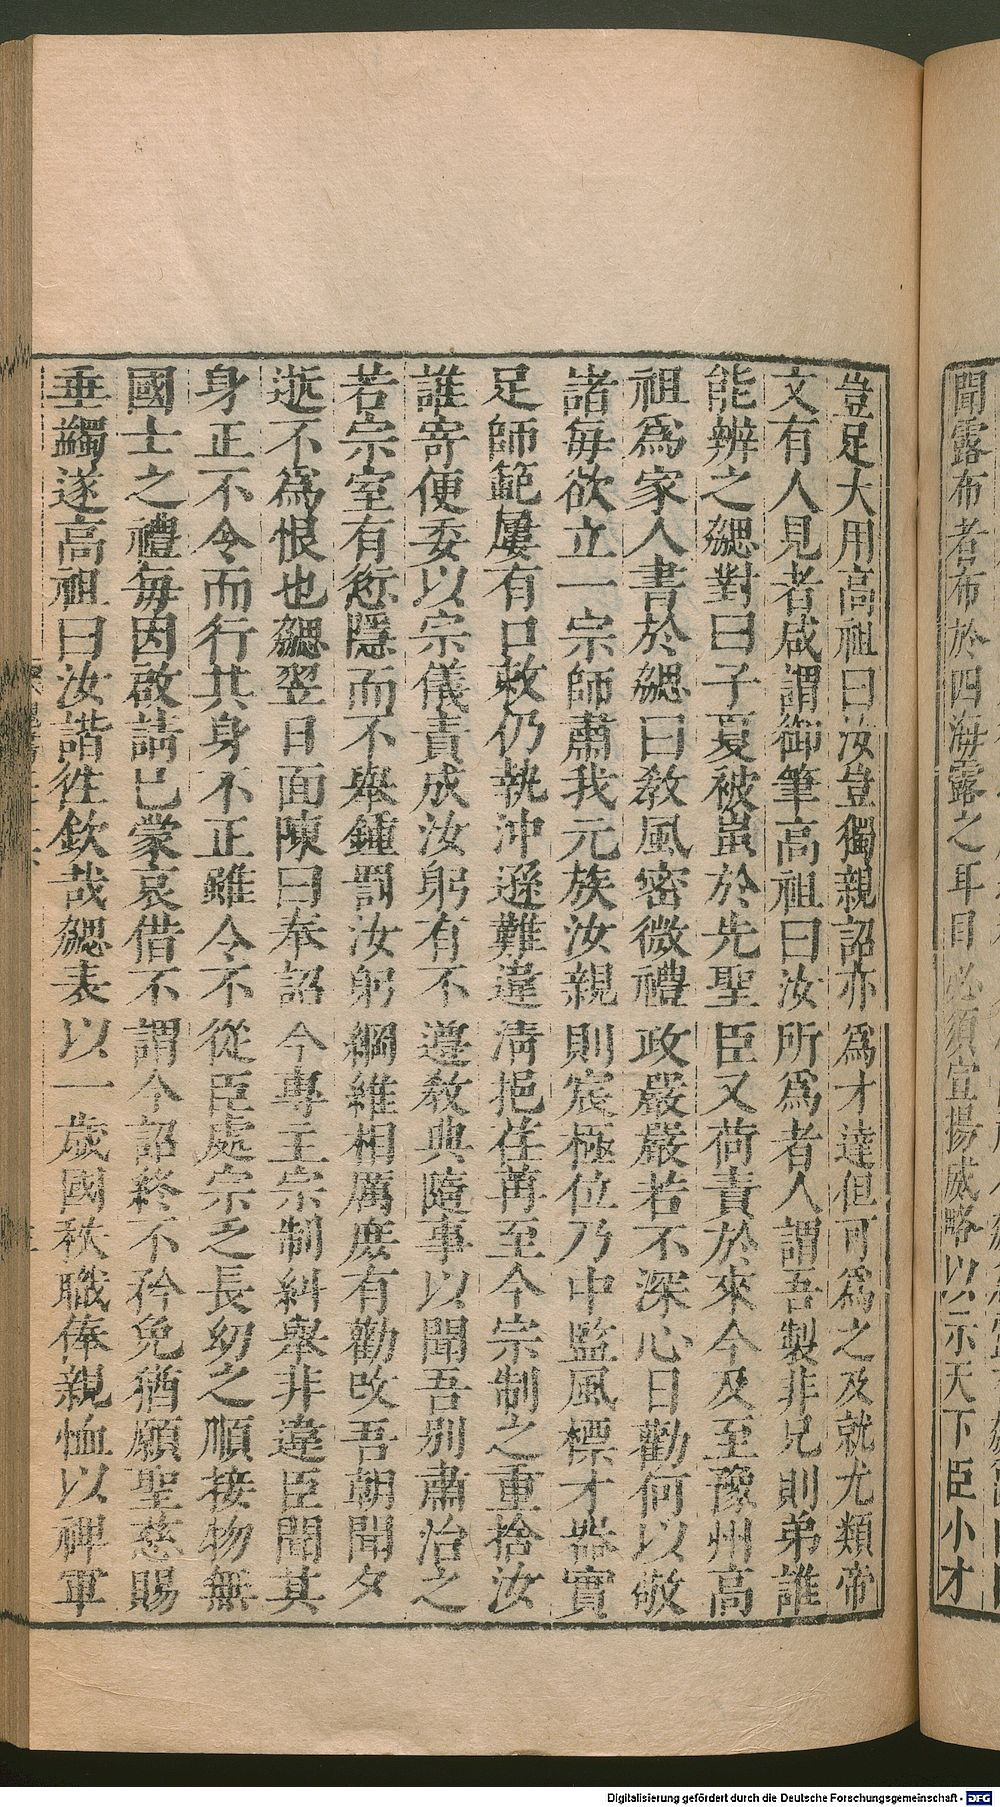 聞露布者布於四海露之耳目必須宣揚威略以示天下臣小才
豈足大用高祖曰汝豈獨親詔亦爲才達但可爲之及就尤類帝
文有人見者咸謂御筆高祖曰汝所爲者人謂吾製非兄則弟誰
能辨之勰對曰子夏被嗤於先聖臣又荷責於來今及至豫州高
祖爲家人書於勰曰敎風密微禮政嚴嚴若不深心日勸何以敬
諸每欲立一宗師肅我元族汝親則宸極位乃中監風標才器實
足師範屢有口敕仍執沖遜難違淸挹荏苒至今宗制之重捨汝
誰寄便委以宗儀責成汝躬有不遵敎典隨事以聞吾别肅治之
若宗室有愆隱而不舉鍾罰汝躬綱維相厲庶有勸改吾朝聞夕
逝不爲恨也勰翌日面陳曰奉詔令專主宗制糾舉非違臣聞其
身正不令而行其身不正雖令不從臣處宗乏長幼之順接物無
國士之禮每因啟請已蒙哀借不謂今詔終不矜免猶願聖慈賜
垂蠲遂高祖曰汝諧徃欽哉勰表以一歲國秩職俸親恤以裨軍
Digitalisierung gefördert durch die Deutsche Forschungsgemeinschaft - DFG